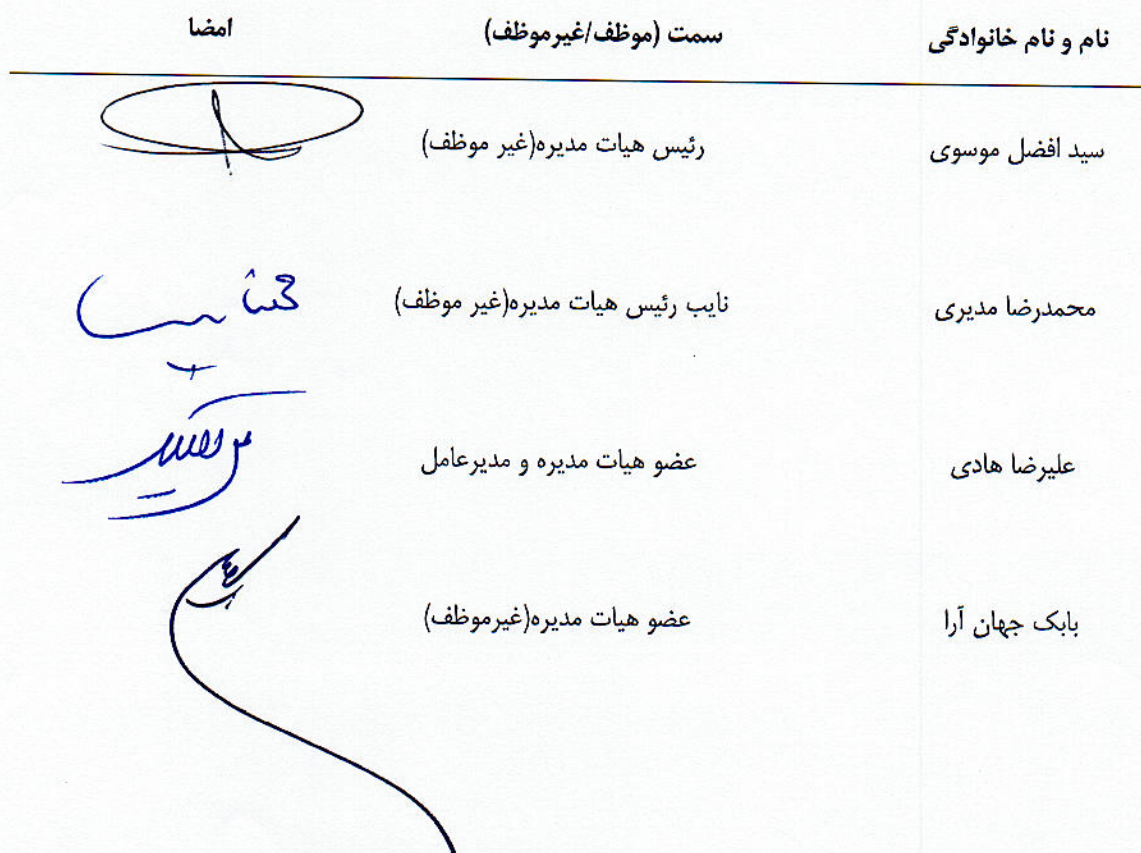 نام و نام خانوادگی سمت (موظف/غیرموظف) امضا
سید افضل موسوی رئیس هیات مدیره(غیر موظف)
محمدرضا مدیری نایب رئیس هیات مدیره(غیر موظف)
علیرضا هادی عضو هیات مدیره و مدیرعامل
بابک جهان آرا عضو هیات مدیره(غیرموظف)